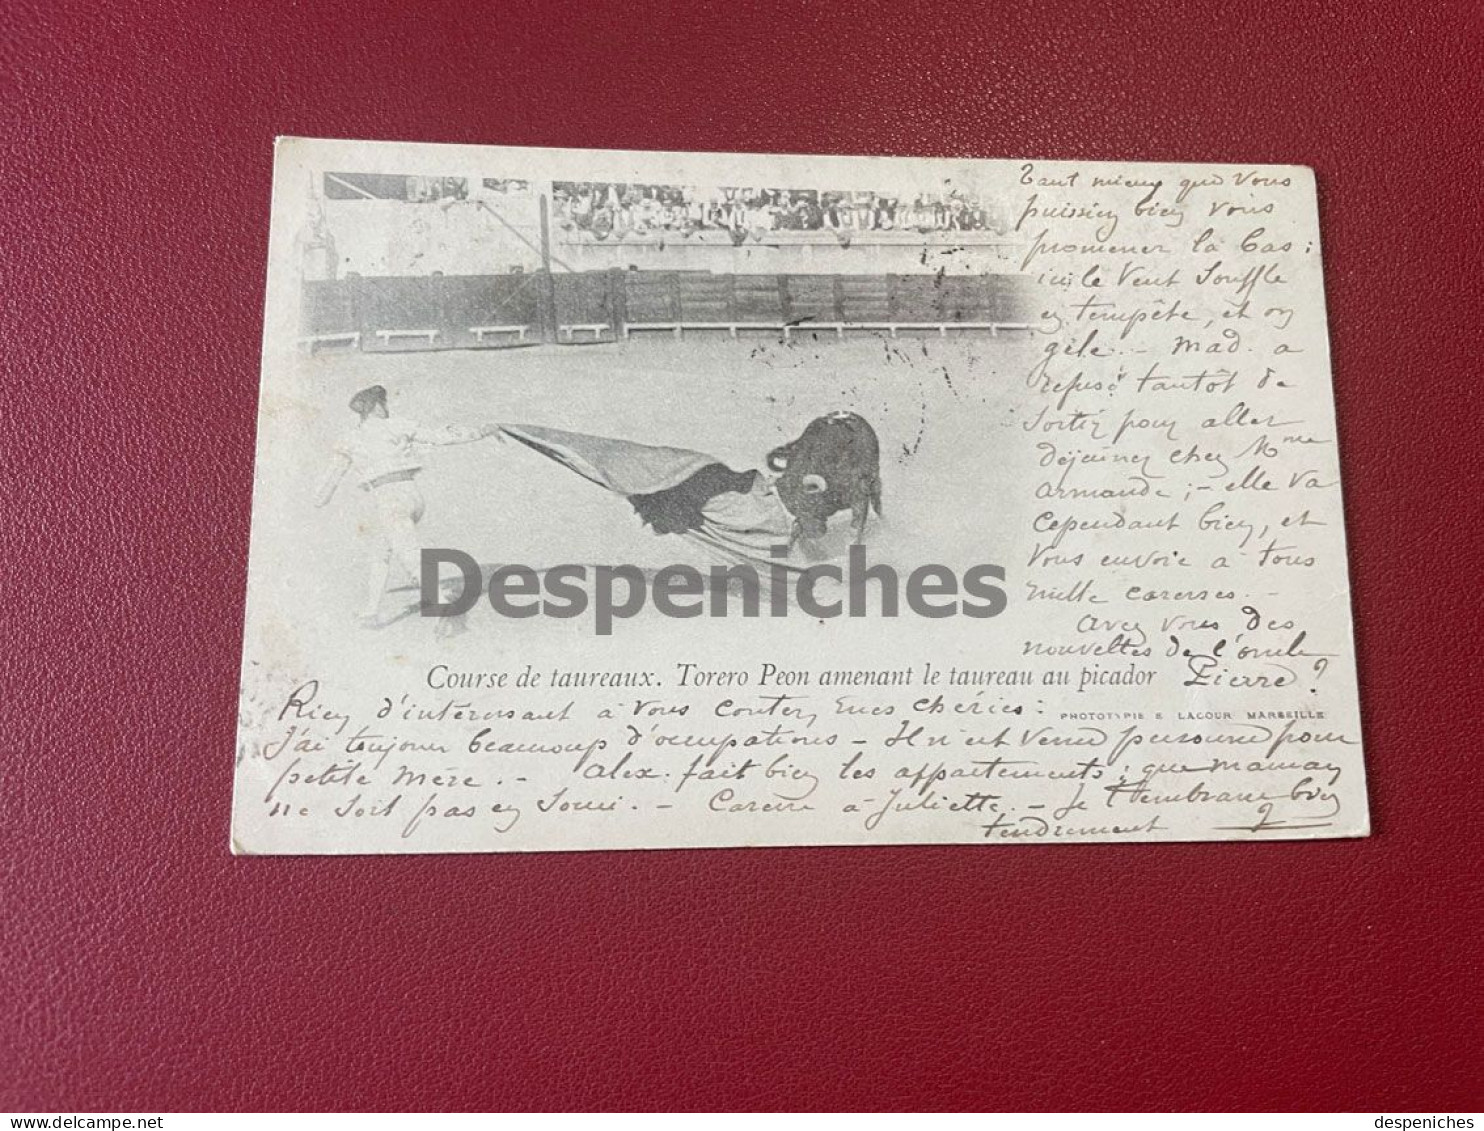 Tant mieux que vous
puissiez bien vous
promener là bas :
ici le vent souffle
en tempête, et on
gèle. – Mad. a
refusé tantôt de
sortir pour aller
déjeuner chez Mme
Armande ; – elle va
cependant bien, et
vous envoie à tous
mille caresses. –
Avez vous des
nouvelles de l'oncle
Pierre ?
Despeniches
Course de taureaux. Torero Peon amenant le taureau au picador
PHOTOTYPIE E LACOUR MARSEILLE
Rien d'intéressant à vous conter, mes chéries :
J'ai toujours beaucoup d'occupations – Il n'est venu personne pour
petite mère. – Alex. fait bien les appartements ; que maman
ne soit pas en souci. – Caresse à Juliette. – Je t'embrasse bien
tendrement
delcampe.net
despeniches